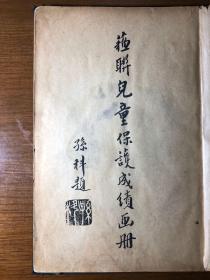 蘓聯兒童保護成績画册
孫科題